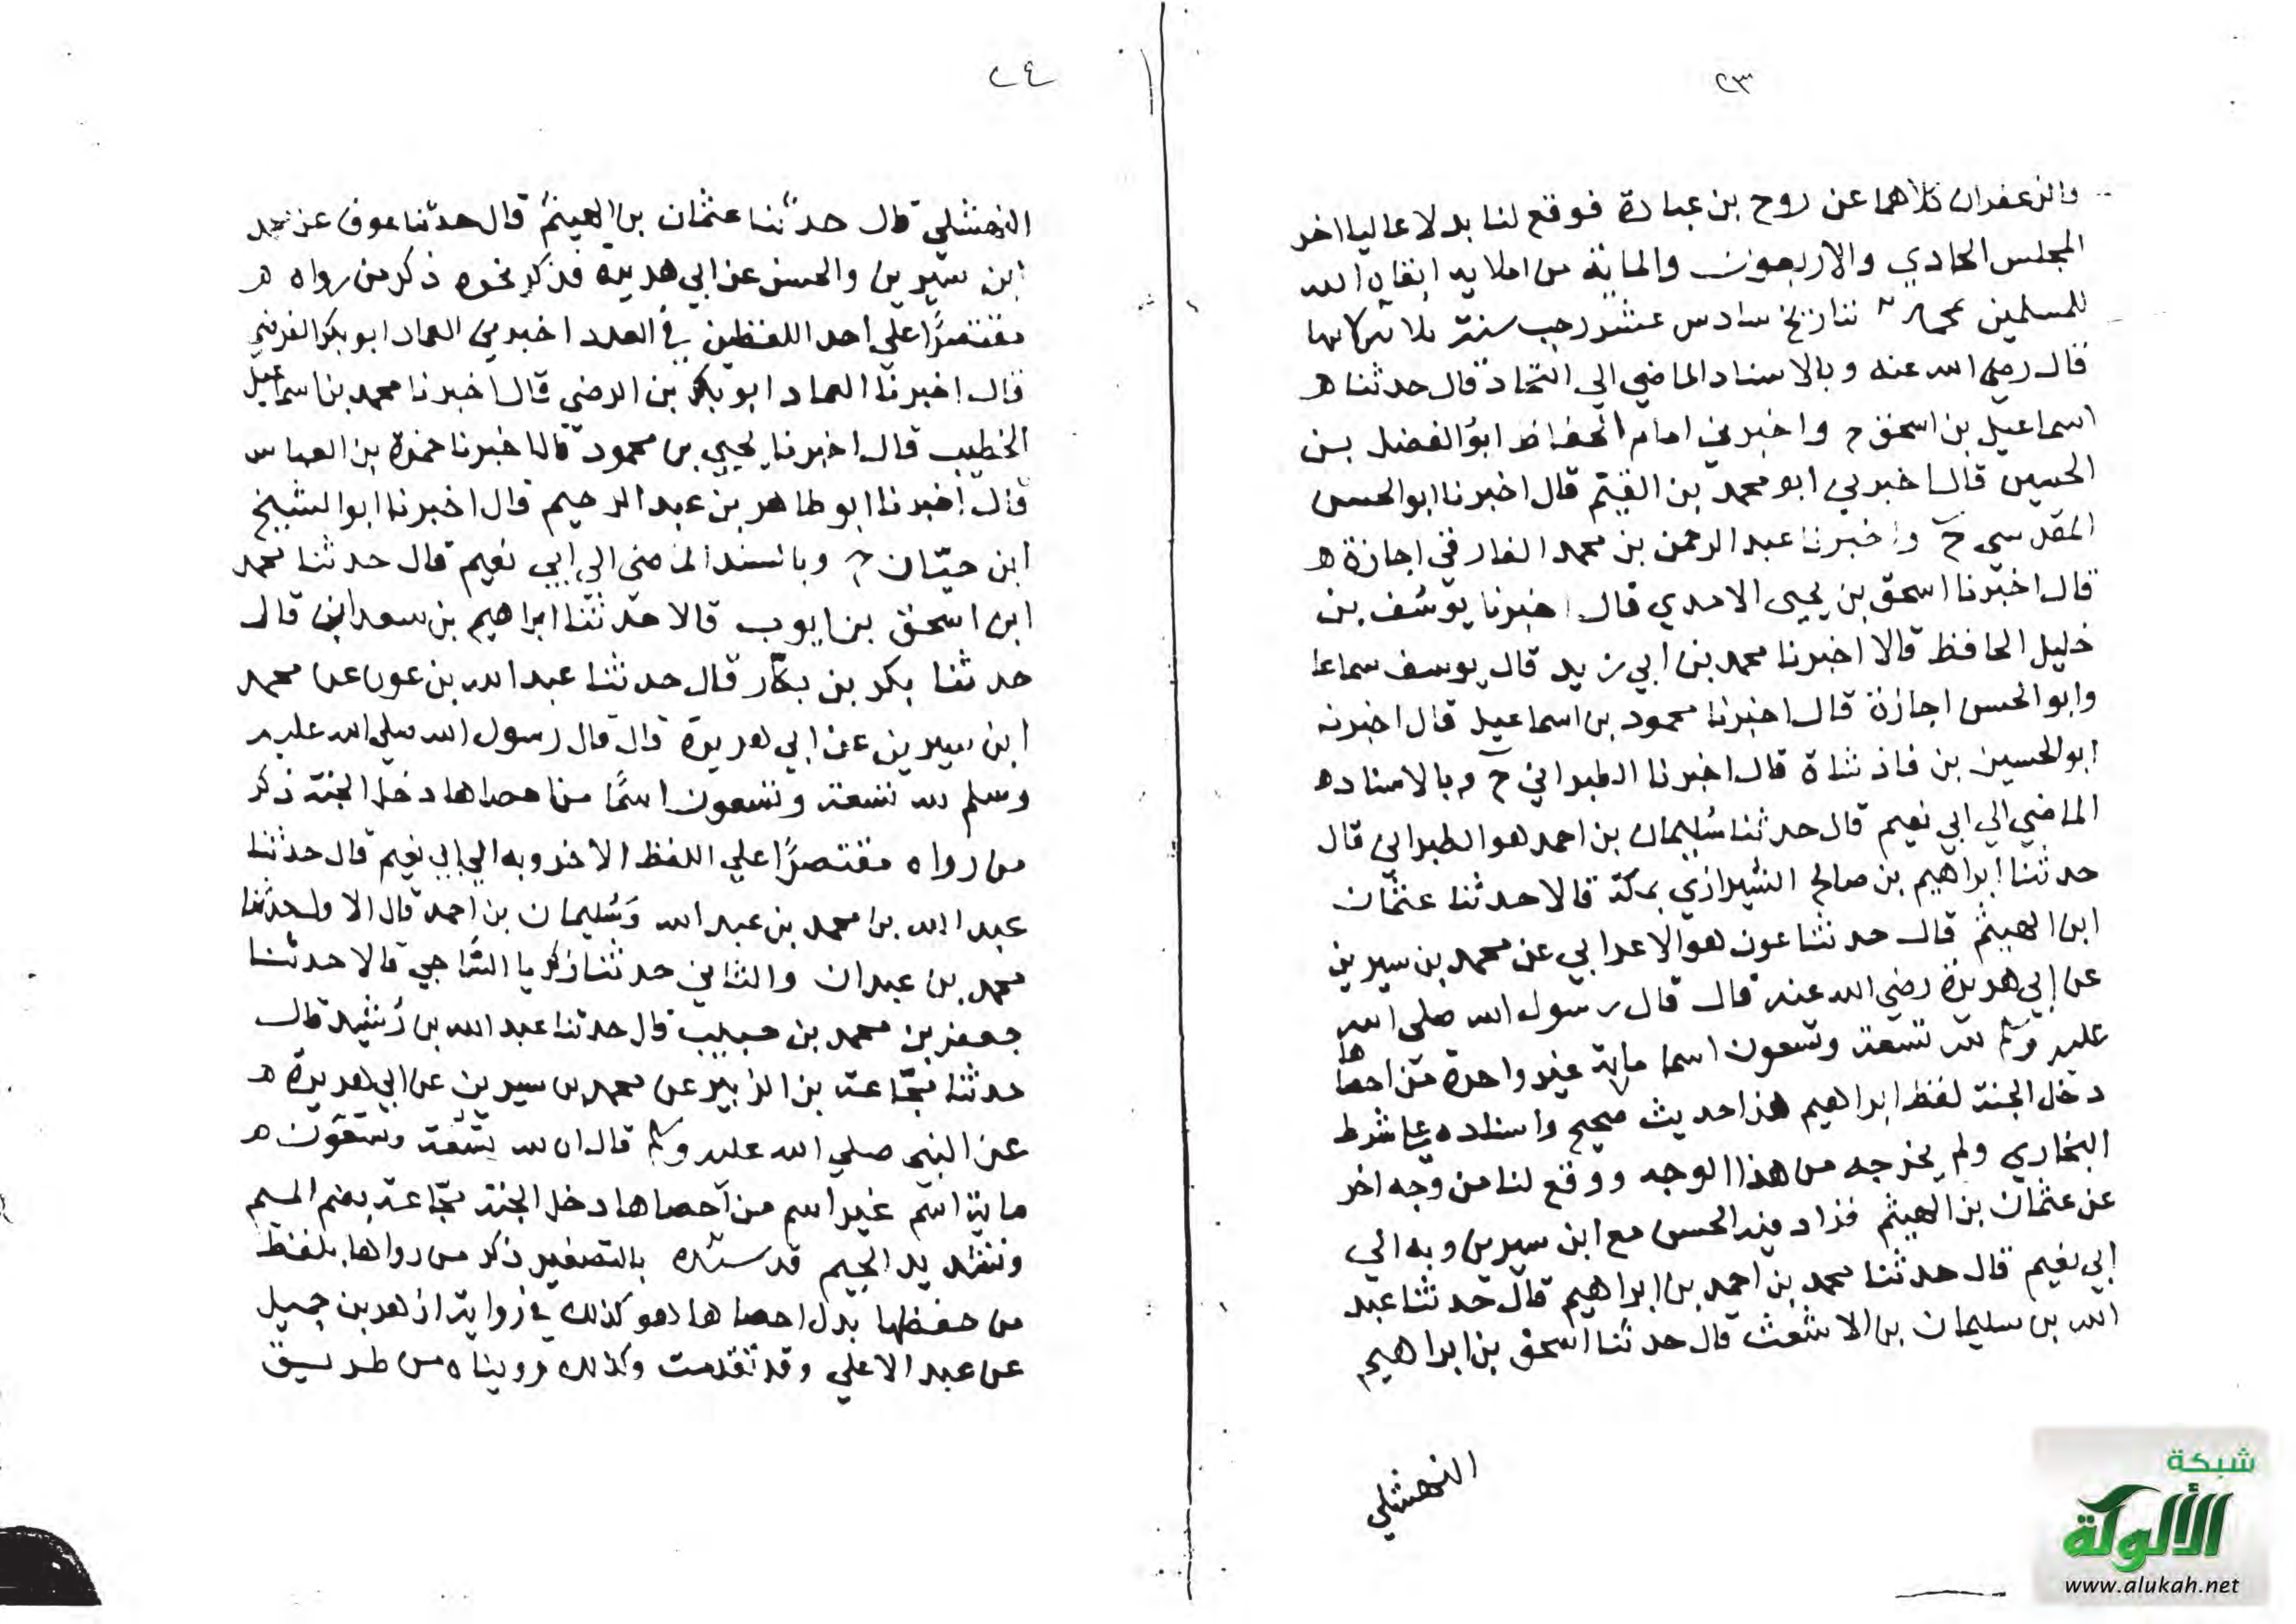 ٢٣
والزعفران كلاهما عن روح بن عبادة فوقع لنا بدلا عاليا اخر
المجلس الحادي والاربعون والماية من املايه ابقاه الله
للمسلمين بتاريخ سادس عشر رجب سنة
قال رضي الله عنه وبالاسناد الماضي الى النجاد قال حدثنا ه
اسماعيل بن اسحق ح واخبرني امام الحفاظ ابو الفضل بن
الحسين قال اخبرني ابو محمد بن القيم قال اخبرنا ابو الحسن
المقدسي ح واخبرنا عبد الرحمن بن محمد الفارقي اجازة ه
قال اخبرنا اسحق بن يحيى الامدي قال اخبرنا يوسف بن
خليل الحافظ قالا اخبرنا محمد بن ابي زيد قال يوسف سماعا
وابو الحسن اجازة قال اخبرنا محمود بن اسماعيل قال اخبرنه
ابو الحسين بن فاذ شاة قال اخبرنا الطبراني ح وبالاسناد ه
الماضي الي ابي نعيم قال حدثنا سُليمان بن احمد هو الطبراني قال
حدثنا ابراهيم بن صالح الشيرازي بمكة قالا حدثنا عثمان
ابن الهيثم قال حدثنا عوف هو الاعرابي عن محمد بن سيرين
عن ابي هريرة رضي الله عنه قال قال رسول الله صلى الله
عليه وسلم لله تسعة وتسعون اسما ماية غير واحدة من احصاها
دخل الجنة لفظ ابراهيم هذا حديث صحيح واسناده على شرط
البخاري ولم يخرجه من هذا الوجه ووقع لنا من وجه اخر
عن عثمان بن الهيثم فزاد فيه الحسن مع ابن سيرين وبه الي
ابي نعيم قال حدثنا محمد بن احمد بن ابراهيم قال حدثنا عبد
الله بن سليمان بن الاشعث قال حدثنا اسحق بن ابراهيم
النهشلي
٢٤
النهشلي قال حدثنا عثمان بن الهيثم قال حدثنا عوف عن محمد
ابن سيرين والحسن عن ابي هريرة فذكر نحوه ذكر من رواه ه
مقتصرًا علي احد اللفظين في العدد اخبرني العماد ابو بكر الفرضي
قال اخبرنا العماد ابو بكر بن الرضي قال اخبرنا محمد بن اسماعيل
الخطيب قال اخبرنا يحيي بن محمود قال اخبرنا حمزة بن العباس
قال اخبرنا ابو طاهر بن عبد الرحيم قال اخبرنا ابو الشيخ
ابن حيّان ح وبالسند الماضي الي ابي نعيم قال حدثنا محمد
ابن اسحق بن ايوب قالا حدثنا ابراهيم بن سعدان قال
حدثنا بكر بن بكّار قال حدثنا عبد الله بن عون عن محمد
ابن سيرين عن ابي هريرة قال قال رسول الله صلي الله عليه
وسلم لله تسعة وتسعون اسمًا من احصاها دخل الجنة ذكر
من رواه مقتصرًا علي اللفظ الاخر وبه الي ابي نعيم قال حدثنا
عبد الله بن محمد بن عبد الله وسُليمان بن احمد قال الاول حدثنا
محمد بن عبدان والثاني حدثنا زكريا السَّاجي قالا حدثنا
جعفر بن محمد بن حبيب قال حدثنا عبد الله بن رُشيد قال
حدثنا مُجّاعة بن الزبير عن محمد بن سيرين عن ابي هريرة ه
عن النبي صلي الله عليه وسلم قال ان لله تسعة وتسعون ه
ماية اسم غير اسم من احصاها دخل الجنة مجاعة بضم الميم
وتشديد الجيم بالتصغير ذكر من رواها بلفظ
من حفظها بدل احصاها وهو كذلك في رواية ازهر بن جميل
عن عبد الاعلي وقد تقدمت وكذلك رويناه من طريق
شبكة
الألوكة
www.alukah.net